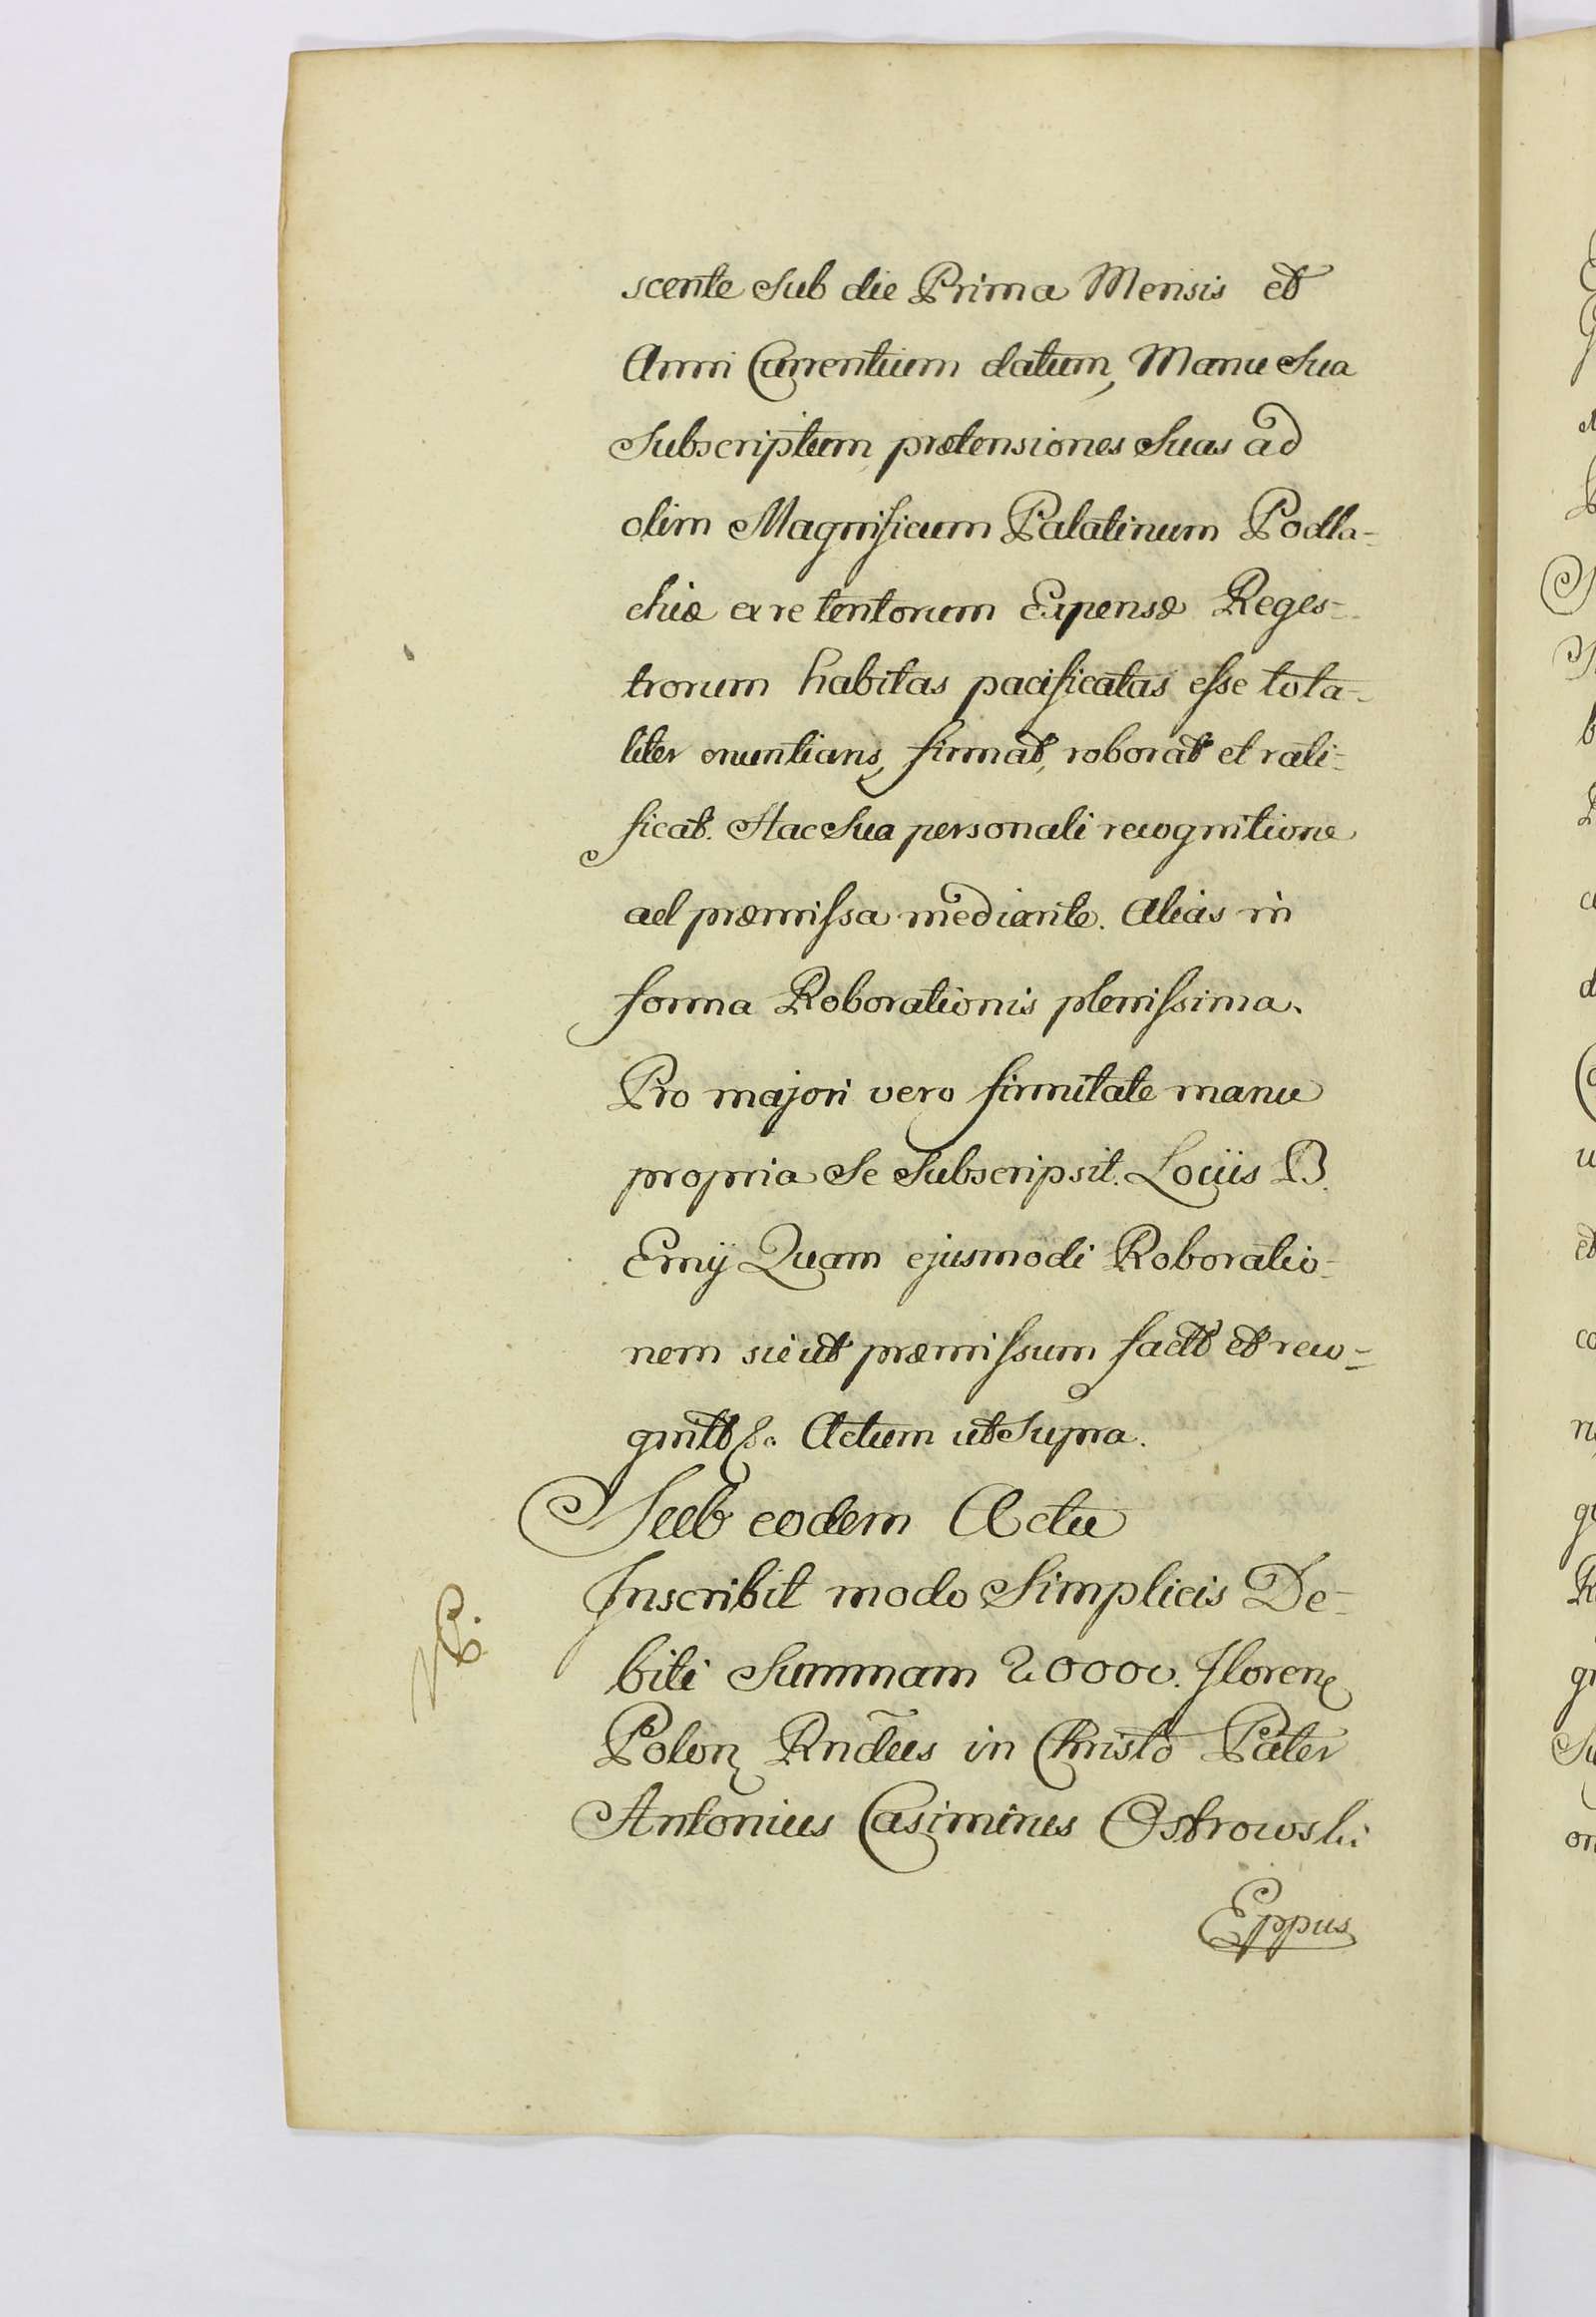 scente Sub die Prima Mensis et
Anni Currentium datum, Manu Sua
Subscriptum prætensiones Suas ad
olim Magnificum Palatinum Podla-
chiæ ex re tentorum Expensæ Reges-
trorum habitas pacificatas esse tota-
liter enuntians, firmat, roborat et rati-
ficat. Hac Sua personali recognitione
ad præmissa mediante. Alias in
forma Roborationis plenissima.
Pro majori vero firmitate manu
propria Se Subscripsit. Locus B.
Emij Quam ejusmodi Roboratio-
nem sicut præmissum factt et reco-
gnitt &c. Actum ut Supra.
Sub eodem Actu
Inscribit modo Simplicis De-
biti Summam 20000. floren
Polon Rndus in Christo Pater
Antonius Casimirus Ostrowski
Eppus